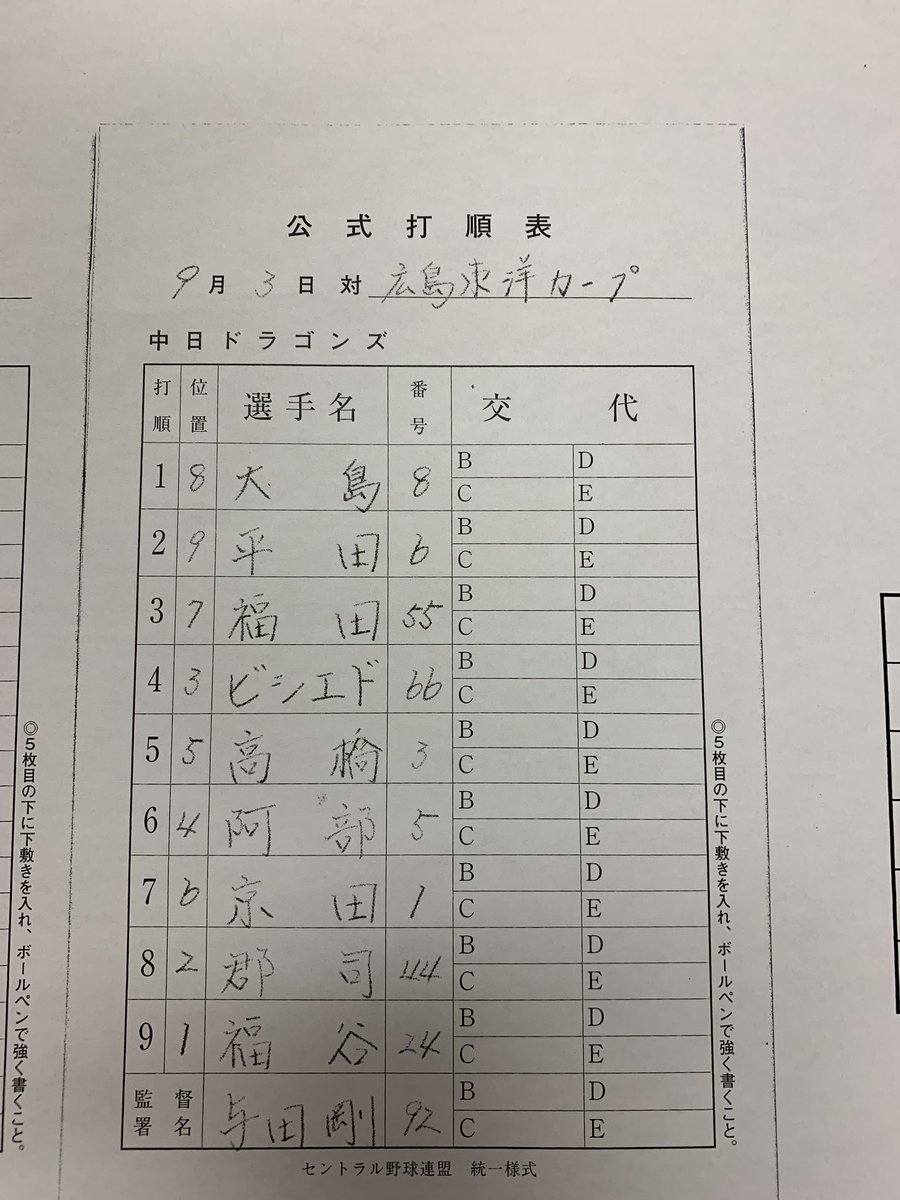 公式打順表
9月3日対 広島東洋カープ
中日ドラゴンズ
打順 位置 選手名 番号 交代
1 8 大島 8 B D
C E
2 9 平田 6 B D
C E
3 7 福田 55 B D
C E
4 3 ビシエド 66 B D
C E
5 5 高橋 3 B D
C E
6 4 阿部 5 B D
C E
7 6 京田 1 B D
C E
8 2 郡司 44 B D
C E
9 1 福谷 24 B D
C E
監督署名 与田剛 92 B D
C E
セントラル野球連盟 統一様式
◎5枚目の下に下敷きを入れ、ボールペンで強く書くこと。
◎5枚目の下に下敷きを入れ、ボールペンで強く書くこと。